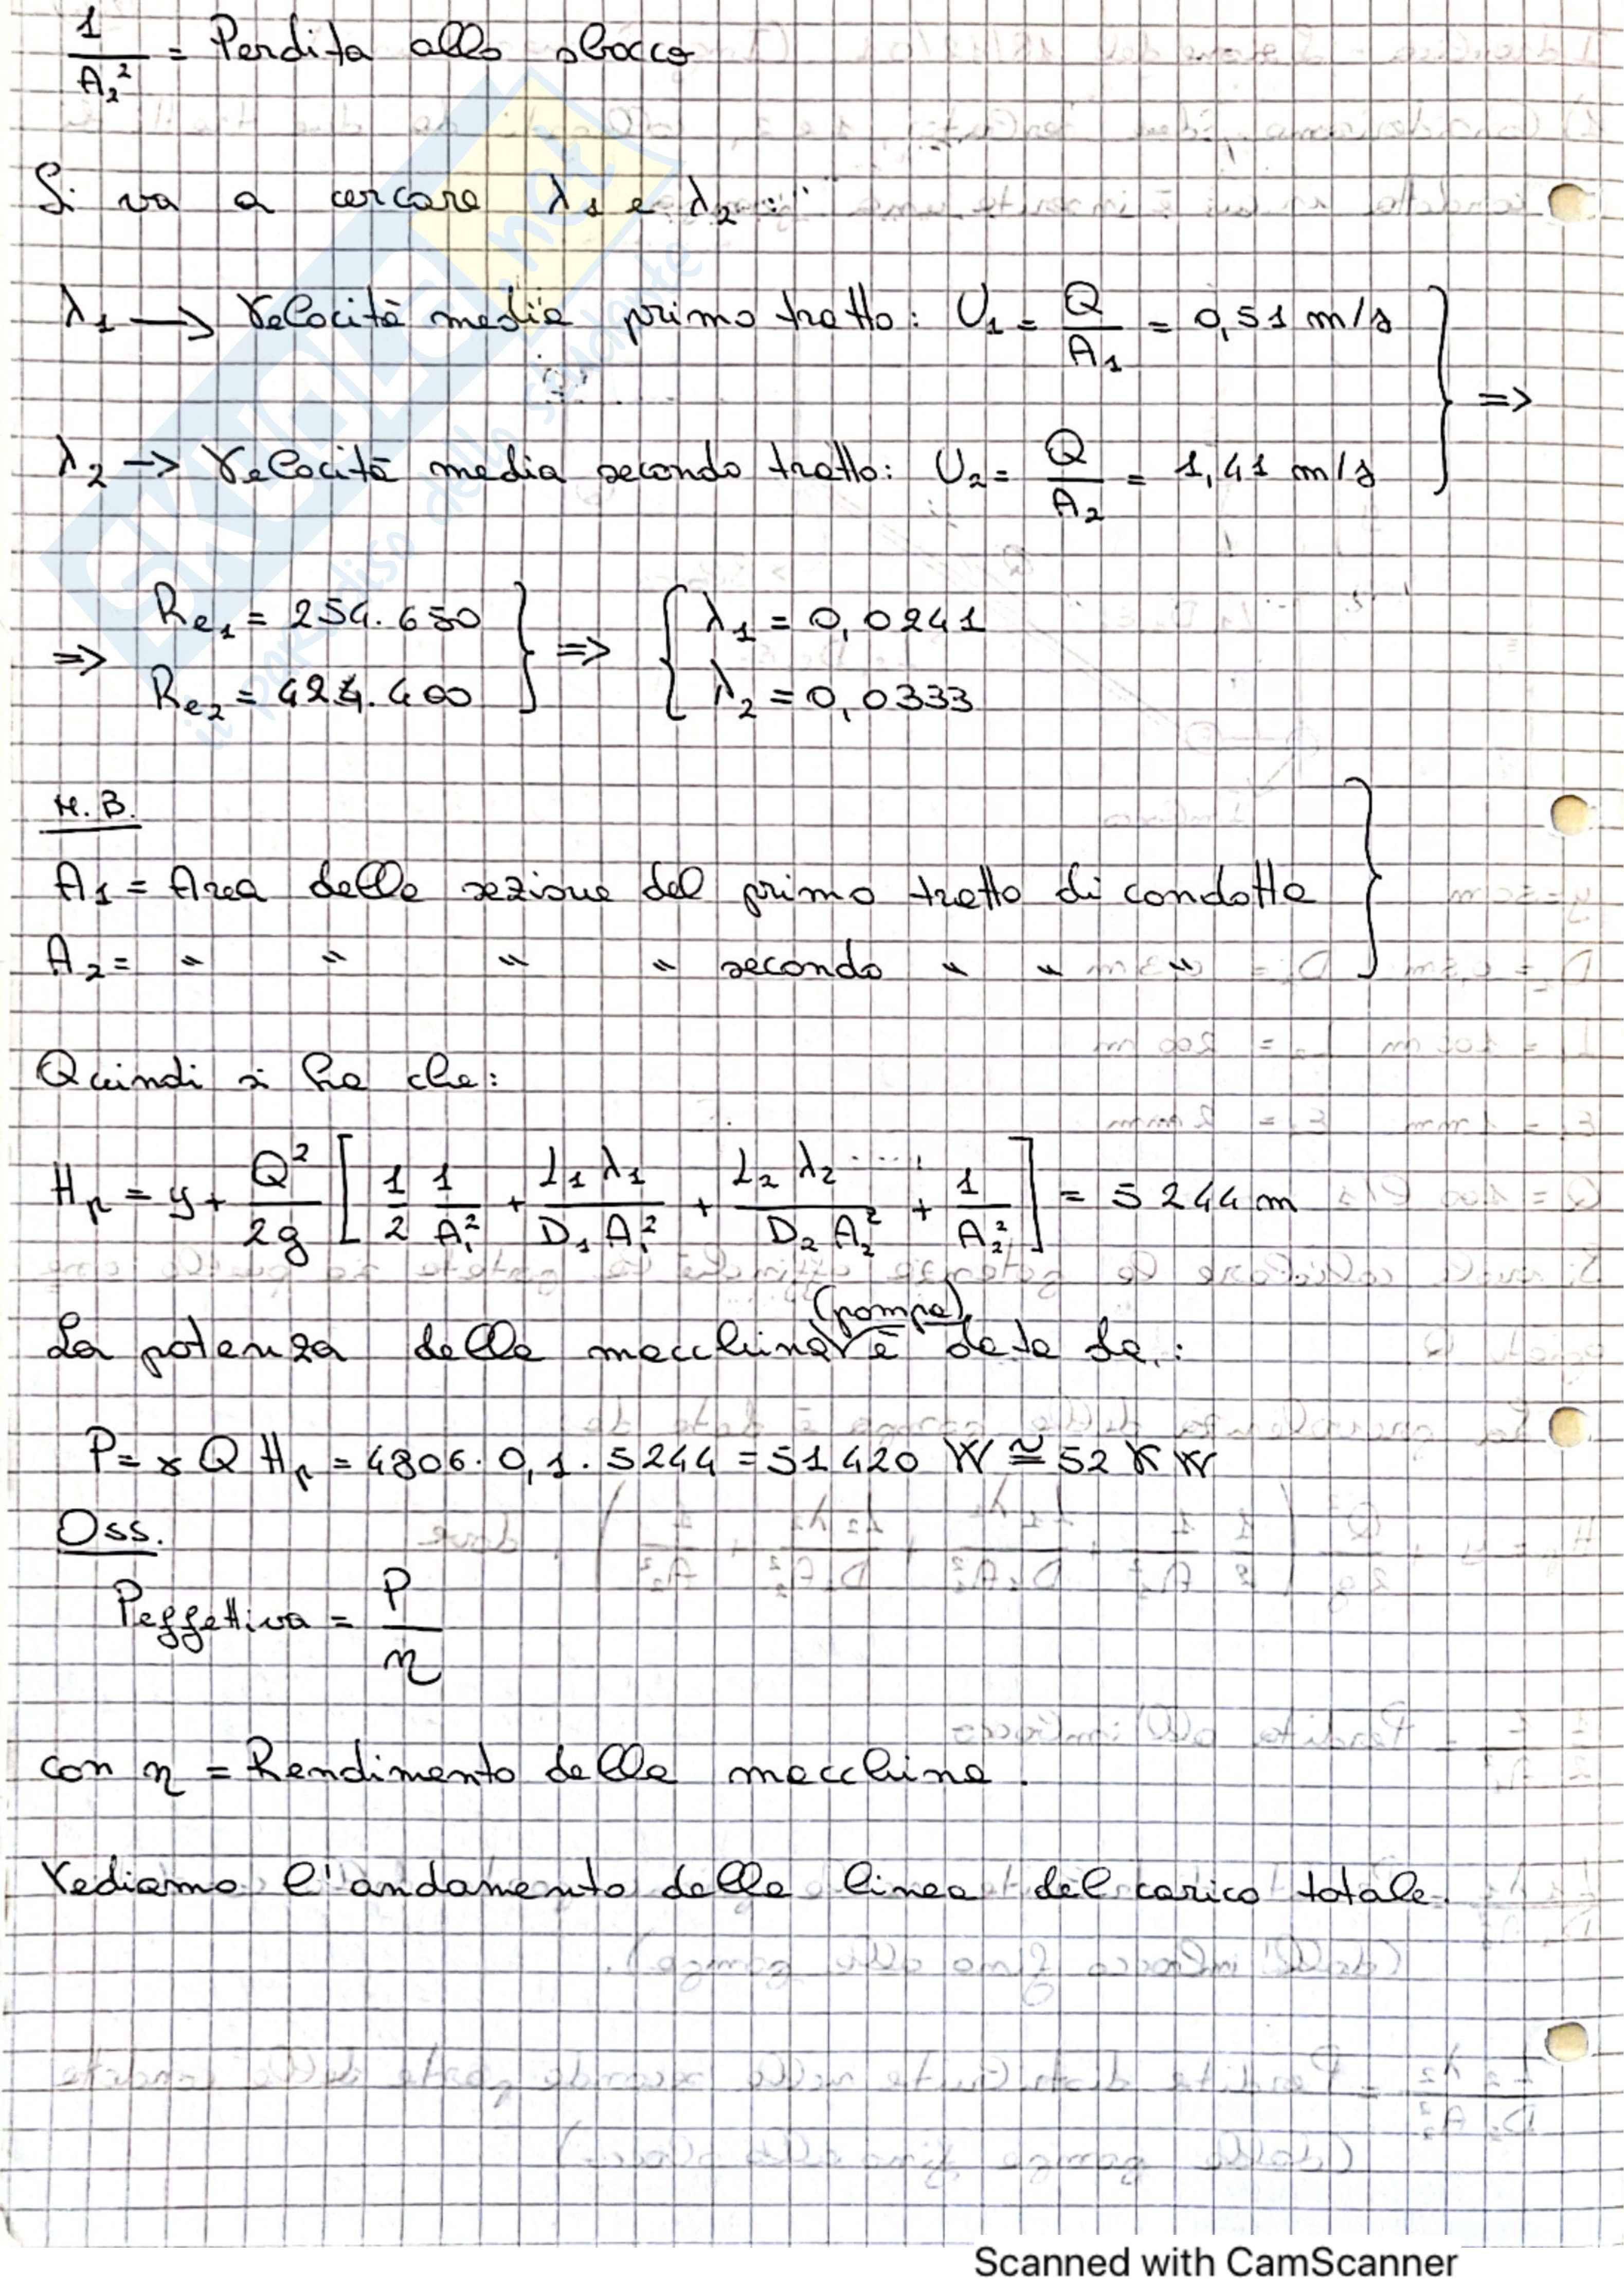 1/A₂² = Perdita allo sbocco
Si va a cercare λ₁ e λ₂:
λ₁ → Velocità media primo tratto: U₁ = Q/A₁ = 0,51 m/s
⇒
λ₂ → Velocità media secondo tratto: U₂ = Q/A₂ = 1,41 m/s
⇒ Re₁ = 254.650 ⇒ λ₁ = 0,0241
Re₂ = 424.400 λ₂ = 0,0333
N.B.
A₁ = Area della sezione del primo tratto di condotta
A₂ = " " " " secondo " " "
Quindi si ha che:
Hp = y + Q²/2g [1/2 1/A₁² + L₁λ₁/D₁A₁² + L₂λ₂/D₂A₂² + 1/A₂²] = 5244 m
(pompa)
La potenza della macchina è data da:
P = γ Q Hp = 4806 · 0,1 · 5244 = 51420 W ≅ 52 KW
Oss.
Peffettiva = P/η
con η = Rendimento della macchina.
Vediamo l'andamento della linea del carico totale.
SKUOLA.net
il paradiso dello studente
Scanned with CamScanner